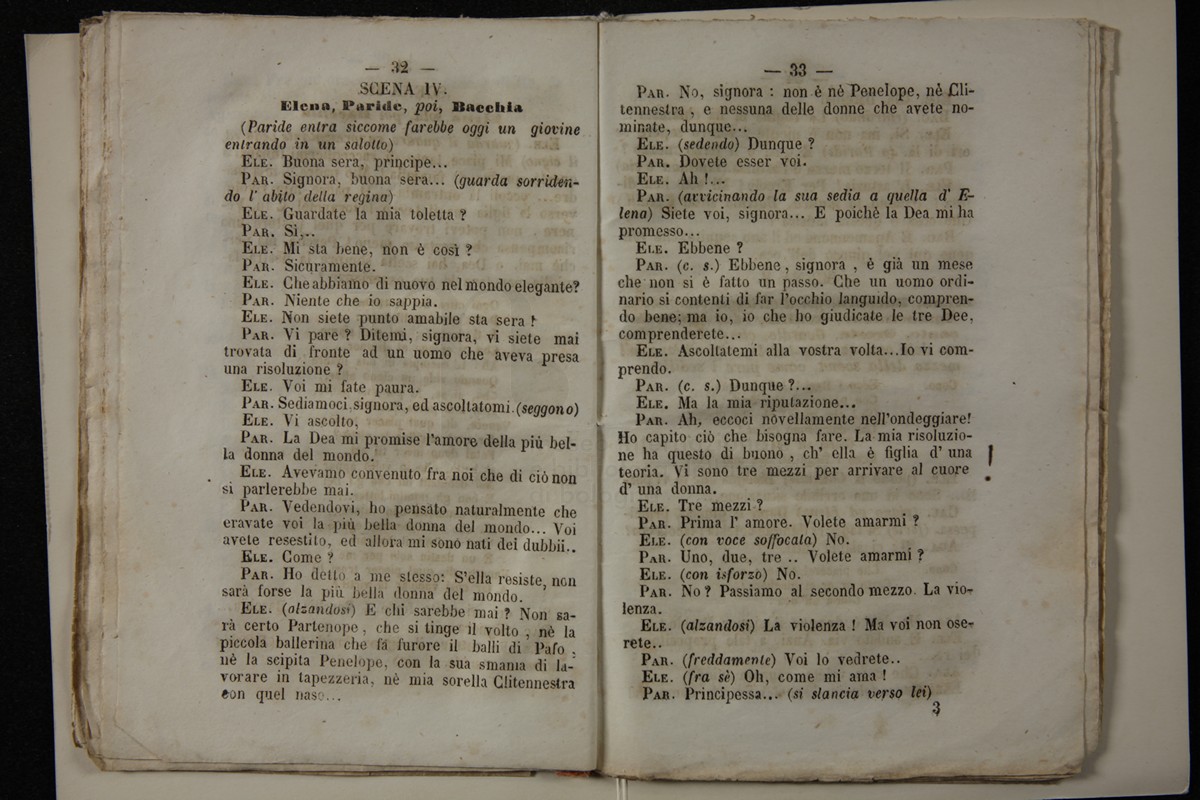 — 32 —
SCENA IV.
Elena, Paride, poi, Bacchia
(Paride entra siccome farebbe oggi un giovine
entrando in un salotto)
ELE. Buona sera, principe...
PAR. Signora, buona sera... (guarda sorriden-
do l' abito della regina)
ELE. Guardate la mia toletta ?
PAR. Sì,..
ELE. Mi sta bene, non è così ?
PAR. Sicuramente.
ELE. Che abbiamo di nuovo nel mondo elegante?
PAR. Niente che io sappia.
ELE. Non siete punto amabile sta sera !
PAR. Vi pare ? Ditemi, signora, vi siete mai
trovata di fronte ad un uomo che aveva presa
una risoluzione ?
ELE. Voi mi fate paura.
PAR. Sediamoci signora, ed ascoltatomi.(seggono)
ELE. Vi ascolto,
PAR. La Dea mi promise l'amore della più bel-
la donna del mondo.
ELE. Avevamo convenuto fra noi che di ciò non
si parlerebbe mai.
PAR. Vedendovi, ho pensato naturalmente che
eravate voi la più bella donna del mondo... Voi
avete resestito, ed allora mi sono nati dei dubbii..
ELE. Come ?
PAR. Ho detto a me stesso: S'ella resiste, non
sarà forse la più bella donna del mondo.
ELE. (alzandosi) E chi sarebbe mai ? Non sa-
rà certo Partenope, che si tinge il volto , nè la
piccola ballerina che fa furore il balli di Pafo ,
nè la scipita Penelope, con la sua smania di la-
vorare in tapezzeria, nè mia sorella Clitennestra
con quel naso...
— 33 —
PAR. No, signora : non è nè Penelope, nè Cli-
tennestra , e nessuna delle donne che avete no-
minate, dunque...
ELE. (sedendo) Dunque ?
PAR. Dovete esser voi.
ELE. Ah !...
PAR. (avvicinando la sua sedia a quella d' E-
lena) Siete voi, signora... E poichè la Dea mi ha
promesso...
ELE. Ebbene ?
PAR. (c. s.) Ebbene , signora , è già un mese
che non si è fatto un passo. Che un uomo ordi-
nario si contenti di far l'occhio languido, compren-
do bene; ma io, io che ho giudicate le tre Dee,
comprenderete...
ELE. Ascoltatemi alla vostra volta...Io vi com-
prendo.
PAR. (c. s.) Dunque ?...
ELE. Ma la mia riputazione...
PAR. Ah, eccoci novellamente nell'ondeggiare!
Ho capito ciò che bisogna fare. La mia risoluzio-
ne ha questo di buono , ch' ella è figlia d' una
teoria. Vi sono tre mezzi per arrivare al cuore
d' una donna.
ELE. Tre mezzi ?
PAR. Prima l' amore. Volete amarmi ?
ELE. (con voce soffocata) No.
PAR. Uno, due, tre .. Volete amarmi ?
ELE. (con isforzo) No.
PAR. No ? Passiamo al secondo mezzo. La vio-
lenza.
ELE. (alzandosi) La violenza ! Ma voi non ose-
rete..
PAR. (freddamente) Voi lo vedrete..
ELE. (fra sè) Oh, come mi ama !
PAR. Principessa... (si slancia verso lei)
3